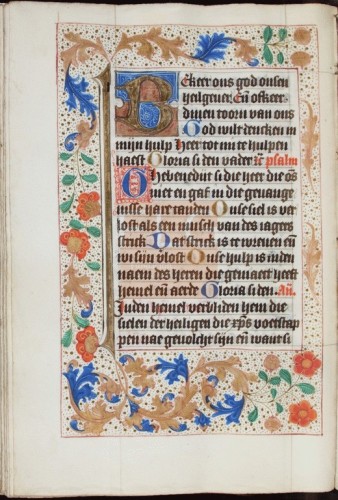 Bekeer ons god onsen
heilgeuer. Eñ ofkeer
dinen toorn van ons
God wilt dencken in
mijn hulp Heer tot mi te hulpen
haest Gloria si den vader rc̄ psalm
Ghebenedijt si die heer die ōs
niet en gaf in die geuange
nisse hare tanden Onse siel is ver
lost als een musch van des iagers
strick Dat strick is te wreuen eñ
wi sijn v̄lost Onse hulp is inden
naem des heren die gemaect heeft
hemel eñ aerde Gloria si den. Añ.
Inden hemel verbliden hem die
sielen der heiligen die xp̄s voetstap
pen nae geuolcht sijn eñ want si